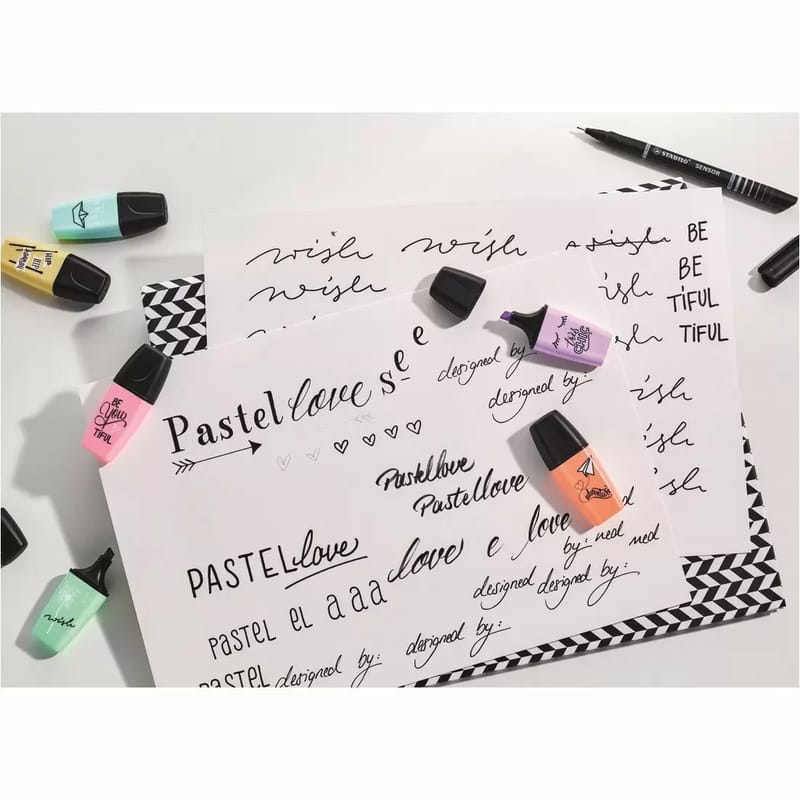 STABILO SENSOR
wish wish wish BE
wish BE
TIFUL
TIFUL
designed by
designed by:
Pastel love see
Pastellove
Pastellove
PASTEL love love e love
PASTEL EL A A A
by: ned ned
designed designed by:
PASTEL designed by: designed by:
HIP HIP HURRAY
BE YOU TIFUL
très CHIC
wish